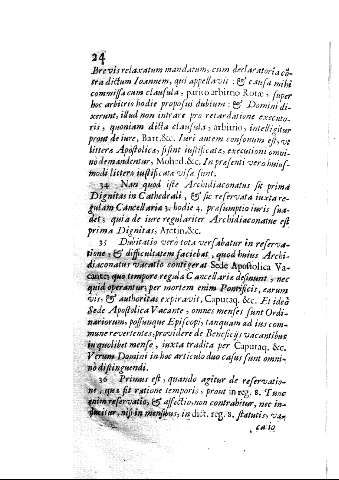 24
Brevis relaxatum mandatum, cum declaratoria cō-
tra dictum Ioannem, qui appellavit: & causa mihi
commissa cum clausula, pariso arbitrio Rotæ, super
hoc arbitrio hodie proposui dubium: & Domini di-
xerunt, illud non intrare pro retardatione executo-
ris, quoniam dicta clausula, arbitrio, intelligitur
prout de iure, Bart.&c. Iuri autem consonum est, ve
littera Apostolica, si sint iustificatæ, executioni omni-
nò demandentur, Mohed.&c. In præsenti vero huius-
modi littera iustificatæ visæ sunt.
34 Nam quod iste Archidiaconatus sit prima
Dignitas in Cathedrali, & sic reservata iuxta re-
gulam Cancellariæ 3. hodie 4. præsumptio iuris sua-
det; quia de iure regulariter Archidiaconatus est
prima Dignitas, Aretin.&c.
35 Dubitatio vero tota versabatur in reserva-
tione, & difficultatem faciebat, quod huius Archi-
diaconatus vacatio contigerat Sede Apostolica Va-
cante, quo tempore regulæ Cancellariæ desinunt, nec
quid operantur, per mortem enim Pontificis, earum
vis, & authoritas expiravit, Caputaq. &c. Et ideò
Sede Apostolica Vacante, omnes menses sunt Ordi-
nariorum, possuntque Episcopi, tanquam ad ius com-
mune revertentes, providere de Beneficijs vacantibus
in quolibet mense, iuxta tradita per Caputaq. &c.
Verum Domini in hoc articulo duo casus sunt omni-
nò distinguendi.
36 Primus est, quando agitur de reservatio-
ne, quæ fit ratione temporis, prout in reg. 8. Tunc
enim reservatio, & affectio non contrahitur, nec in-
ducitur, nisi in mensibus, in dict. reg. 8. statutis, va-
catio